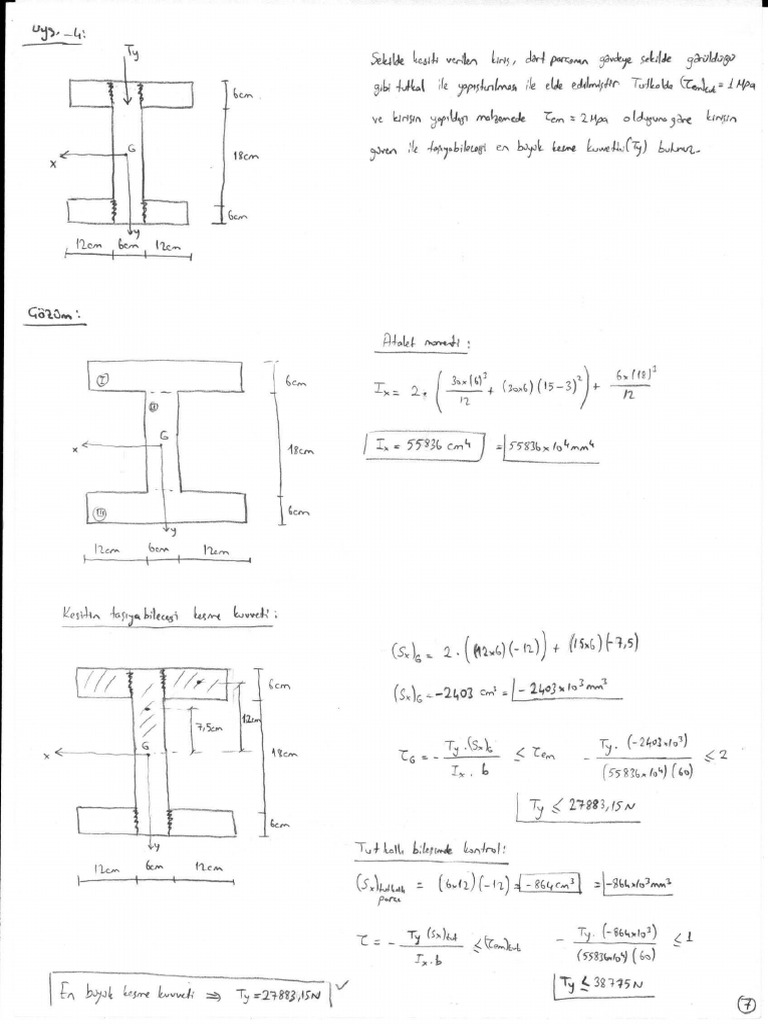 Uyg. -4:
Ty
6cm
18cm
6cm
G
x
y
12cm 6cm 12cm
Şekilde kesiti verilen kiriş, dört parçanın gövdeye şekilde görüldüğü
gibi tutkal ile yapıştırılması ile elde edilmiştir. Tutkalda (τem)tut = 1 MPa
ve kirişin yapıldığı malzemede τem = 2 MPa olduğuna göre kirişin
güven ile taşıyabileceği en büyük kesme kuvvetini (Ty) bulunuz.
Çözüm:
I
II
III
G
x
y
6cm
18cm
6cm
12cm 6cm 12cm
Atalet momenti:
Ix = 2 . ( 30x(6)³/12 + (30x6)(15-3)² ) + 6x(18)³/12
Ix = 55836 cm⁴ = 55836x10⁴mm⁴
Kesitin taşıyabileceği kesme kuvveti:
6cm
12cm
7,5cm
18cm
6cm
G
x
y
12cm 6cm 12cm
(Sx)G = 2 . ((12x6)(-12)) + (15x6)(-7,5)
(Sx)G = -2403 cm³ = -2403x10³mm³
τG = - Ty.(Sx)G / Ix . b ≤ τem - Ty.(-2403x10³) / (55836x10⁴)(60) ≤ 2
Ty ≤ 27883,15N
Tutkallı bileşimde kontrol:
(Sx)tutkallı parça = (6x12)(-12) = -864cm³ = -864x10³mm³
τ = - Ty (Sx)tut / Ix . b ≤ (τem)tut - Ty.(-864x10³) / (55836x10⁴)(60) ≤ 1
Ty ≤ 38775N
En büyük kesme kuvveti ⇒ Ty = 27883,15N ✓
7